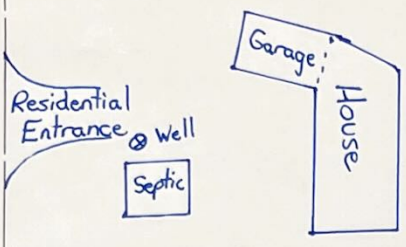 Garage
House
Residential
Entrance
Well
Septic